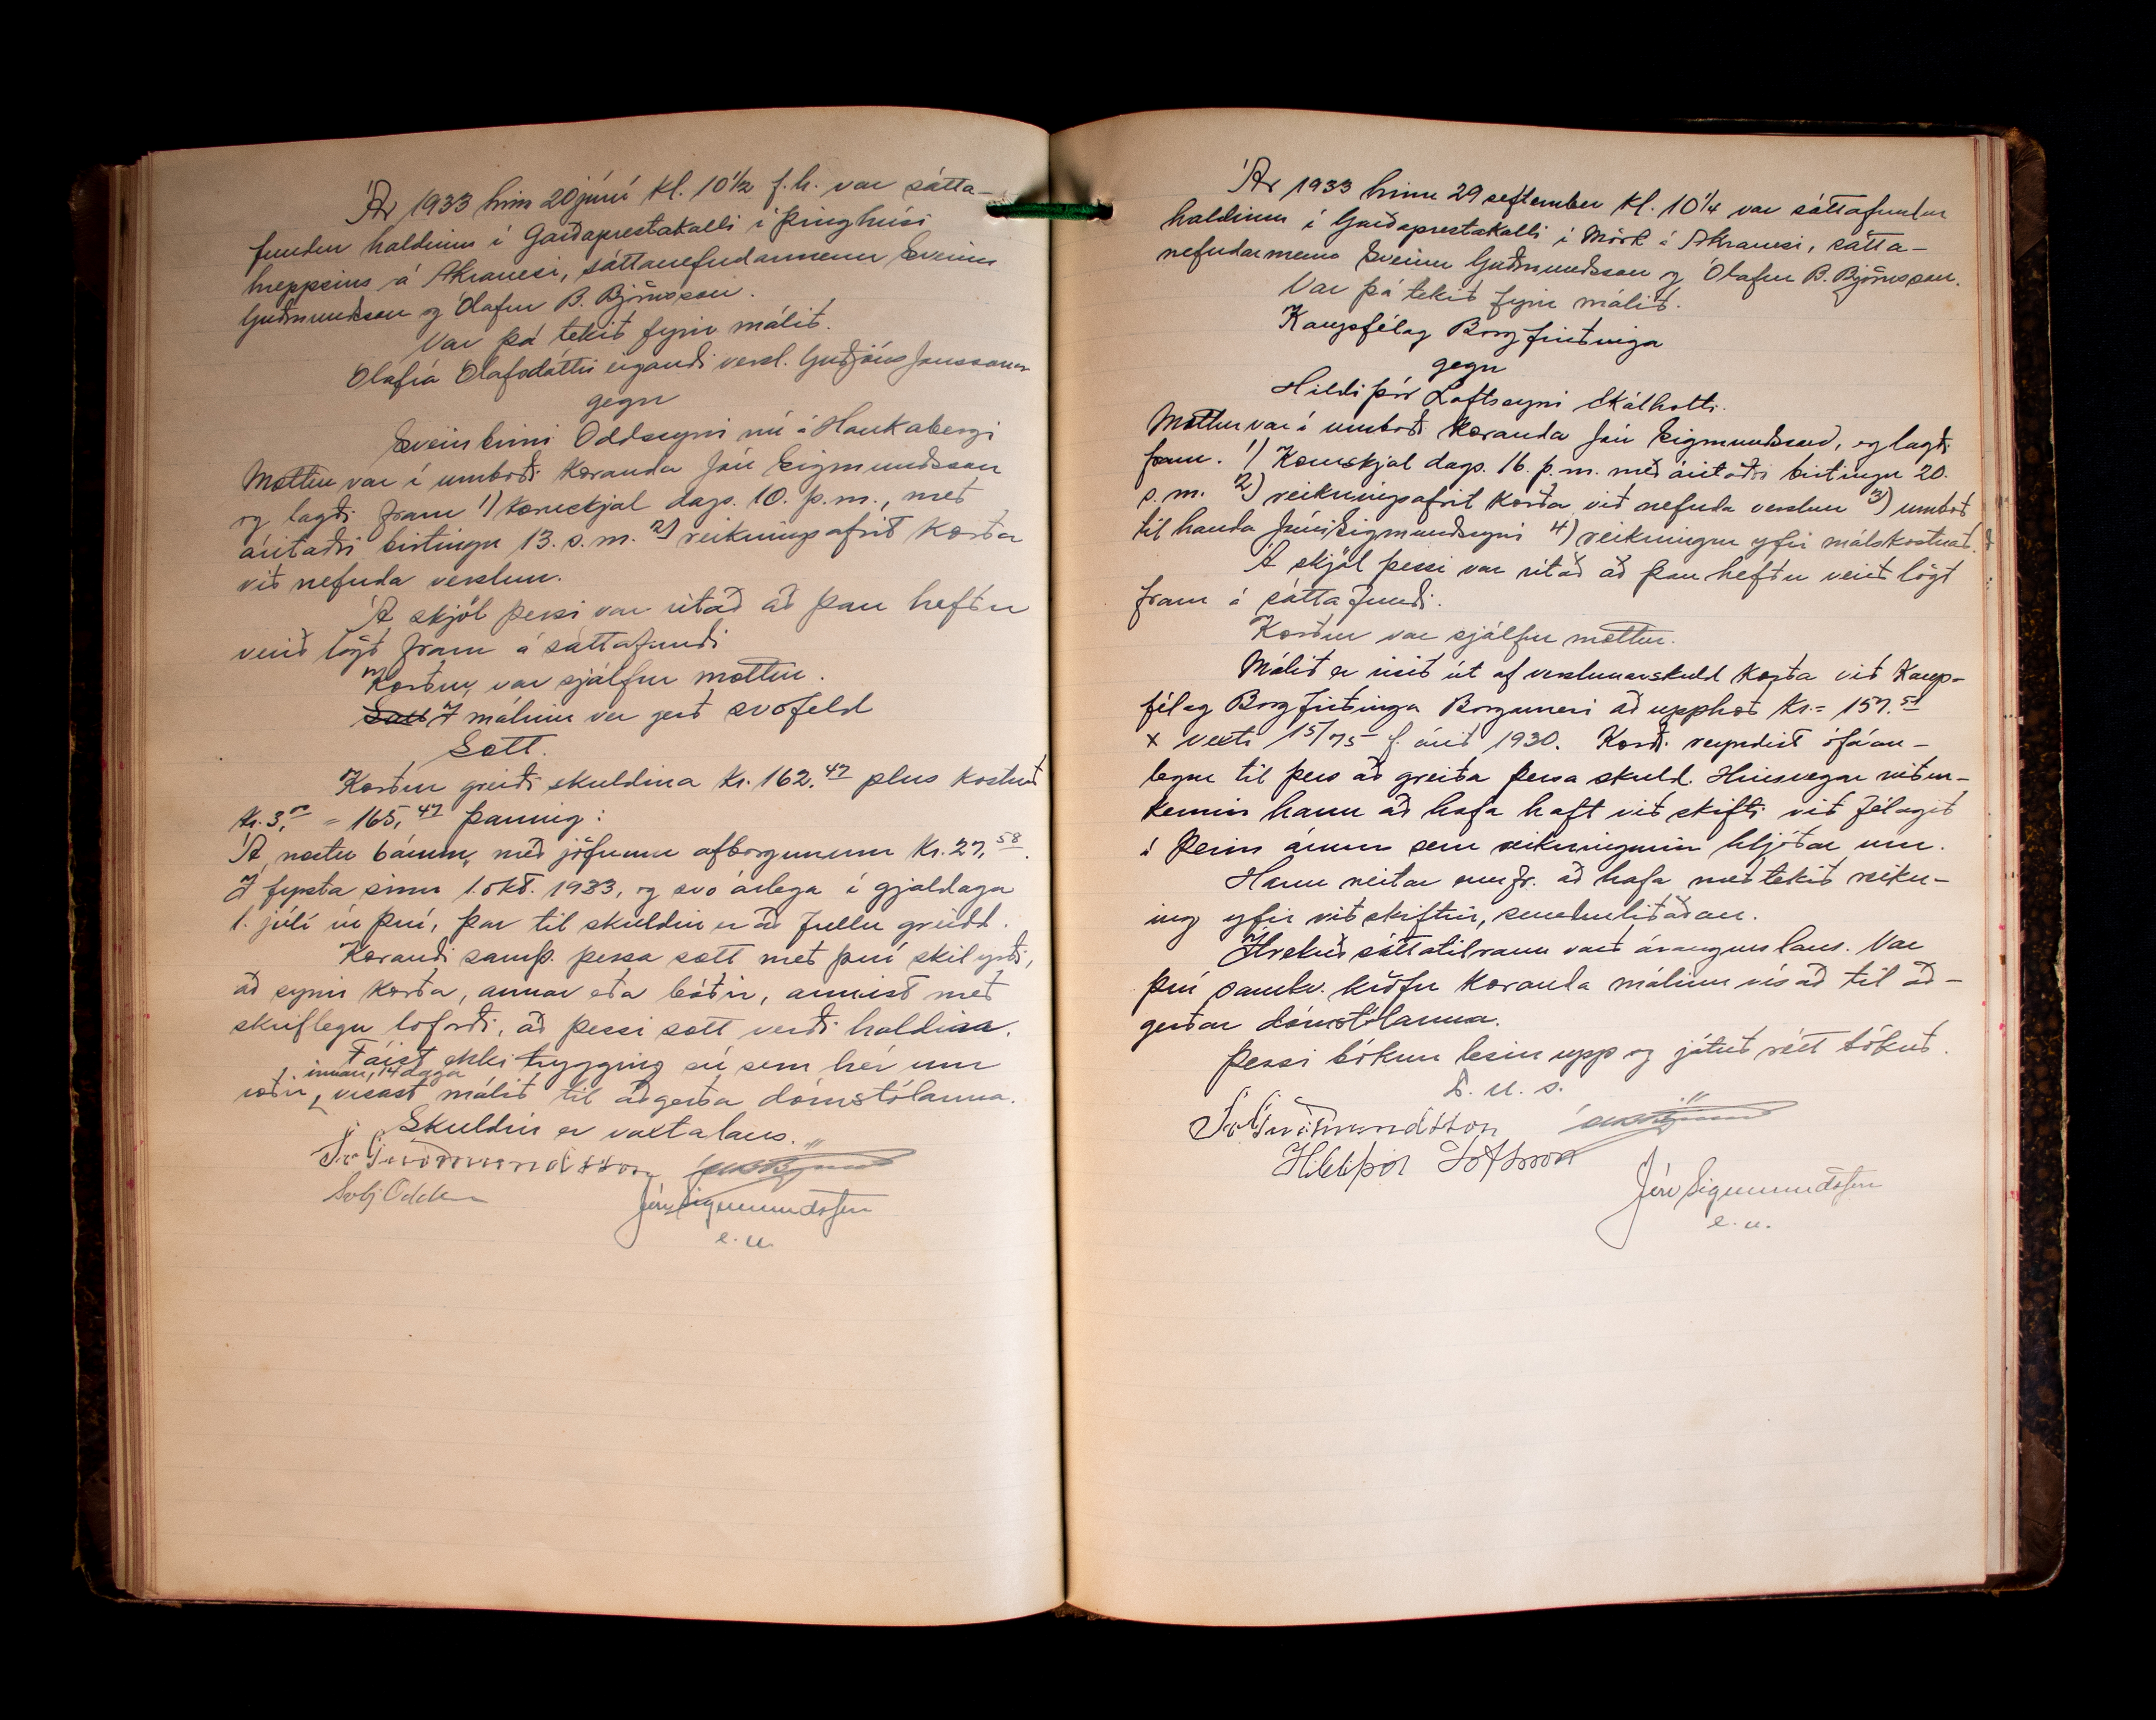 Ár 1933 hinn 20 júní kl. 10½ f.h. var sátta-
fundur haldinn í Garðaprestakalli í þinghúsi
hreppsins á Akranesi, sáttanefndarmenn Sveinn
Guðmundsson og Ólafur B. Björnsson.
Var þá tekið fyrir málið.
Ólafía Ólafsdóttir eigandi versl. Guðjóns Jónssonar
gegn
Sveinbirni Oddssyni nú á Haukabergi
Mættur var í umboði kæranda Jón Sigmundsson
og lagði fram 1) kæruskjal dags. 10. þ.m., með
áritaðri birtingu 13. s.m. 2) reikningsafrit kærða
við nefnda verslun.
Á skjöl þessi var ritað að þau hefðu
verið lögð fram á sáttafundi
Kærður var sjálfur mættur.
Í málinu var gerð svofeld
Sætt.
Kærður greiði skuldina kr. 162.47 plus kostnað
kr. 3.00 = 165,47 þannig:
Á næstu 6 árum, með jöfnum afborgunum kr. 27,58.
Í fyrsta sinn 1. okt. 1933, og svo árlega í gjalddaga
1. júlí úr því, þar til skuldin er að fullu greidd.
Kærandi samþ. þessa sætt með því skilyrði,
að synir kærða, annar eða báðir, annist með
skriflegu loforði, að þessi sætt verði haldin.
Fáist ekki trygging sú sem hér um
innan 14 daga
ræðir, vísast málið til aðgerða dómstólanna.
Skuldin er vaxtalaus.
Sv Guðmundsson
Svbj Oddsson Jón Sigmundsson
e.u.
Ár 1933 hinn 29 september kl. 10¼ var sáttafundur
haldinn í Garðaprestakalli í Mörk á Akranesi, sátta-
nefndarmenn Sveinn Guðmundsson og Ólafur B. Björnsson.
Var þá tekið fyrir málið.
Kaupfélag Borgfirðinga
gegn
Hildiþór Loftssyni Skálholti.
Mættur var í umboði kæranda Jón Sigmundsson, og lagði
fram. 1) Kæruskjal dags. 16. þ.m. með áritaðri birtingu 20.
s.m. 2) reikningsafrit kærða við nefnda verslun 3) umboð
til handa Jóni Sigmundssyni 4) reikningur yfir málskostnað.
Á skjöl þessi var ritað að þau hefðu verið lögð
fram á sáttafundi.
Kærður var sjálfur mættur.
Málið er risið út af verslunarskuld kærða við Kaup-
félag Borgfirðinga Borgarnesi að upphæð kr. = 157.51
x vexti 15/75 f. árið 1930. Kærði reyndist ófáan-
legur til þess að greiða þessa skuld. Hinsvegar viður-
kennir hann að hafa haft viðskifti við félagið
á þeim árum sem reikningurinn hljóðar um.
Hann neitar emfr. að hafa meðtekið reikn-
ing yfir viðskiftin, sundurliðaðan.
Ítrekuð sáttatilraun varð árangurslaus. Var
því samkv. kröfu kæranda málinu vísað til að-
gerðar dómstólanna.
Þessi bókun lesin upp og játuð rétt bókuð.
D. u. s.
Sv Guðmundsson
Hildiþór Loftsson
Jón Sigmundsson
e.u.